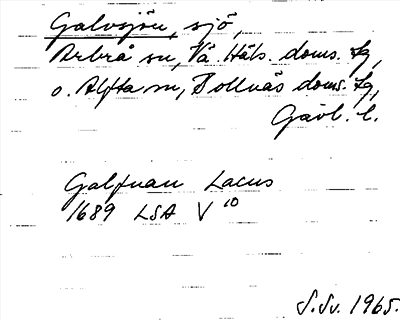 Galvsjön, sjö,
Arbrå sn, Vä. Häls. doms. lg,
o. Alfta sn, Bollnäs doms. lg,
Gävl. l.
Galfuan Lacus
1689 LSA V 10
S.Sv. 1965.